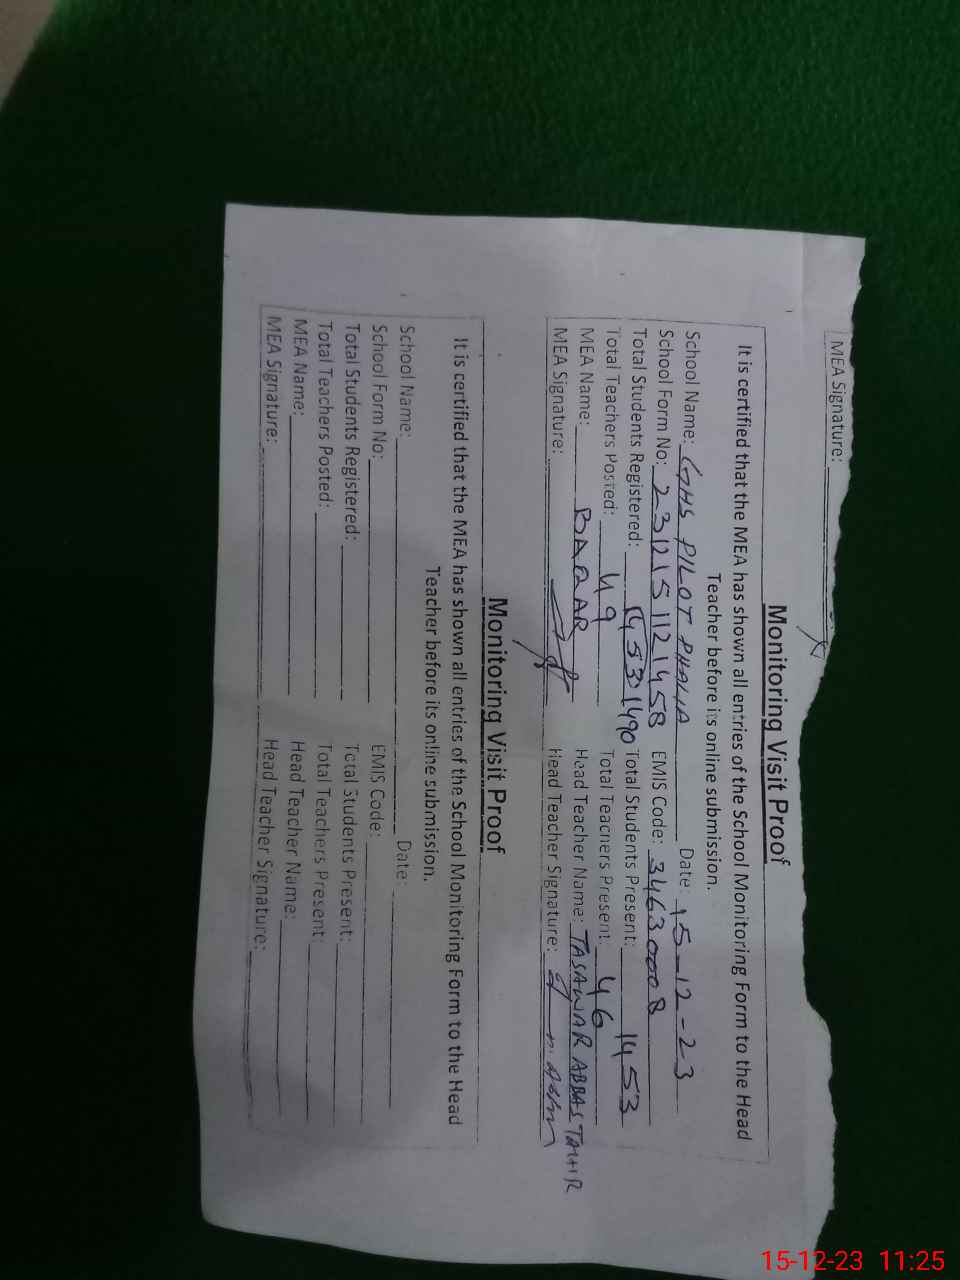 MEA Signature:
Monitoring Visit Proof
It is certified that the MEA has shown all entries of the School Monitoring Form to the Head
Teacher before its online submission.
School Name: GHS PILOT PHALIA Date: 15-12-23
School Form No: 2312151121458 EMIS Code: 34630008
Total Students Registered: 1490 Total Students Present: 1453
Total Teachers Posted: 49 Total Teachers Present: 46
MEA Name: BAQAR Head Teacher Name: TASAWAR ABBAS TAHIR
MEA Signature: Head Teacher Signature:
Monitoring Visit Proof
It is certified that the MEA has shown all entries of the School Monitoring Form to the Head
Teacher before its online submission.
School Name: Date:
School Form No: EMIS Code:
Total Students Registered: Total Students Present:
Total Teachers Posted: Total Teachers Present:
MEA Name: Head Teacher Name:
MEA Signature: Head Teacher Signature:
15-12-23 11:25